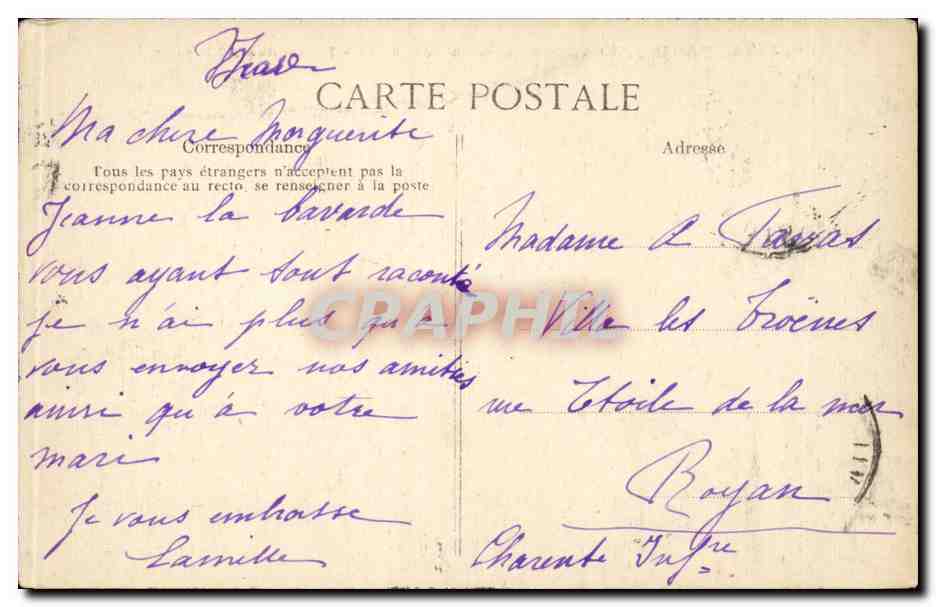 CARTE POSTALE
Ma chere Marguerite
Correspondance
Tous les pays étrangers n'acceptent pas la
correspondance au recto, se renseigner à la poste
Jeanne la bavarde
vous ayant tout raconté
je n'ai plus qu'à
vous envoyer nos amitiés
ainsi qu'à votre
mari
Je vous embrasse
Camille
Adresse
Madame A
Villa les Troënes
rue Etoile de la mer
Royan
Charente Infre
CPAPHIL